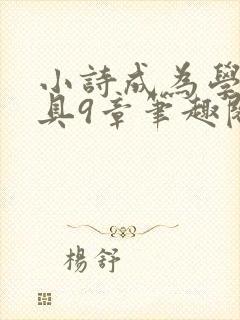 小詩成為學
具9章筆趣閱
楊舒